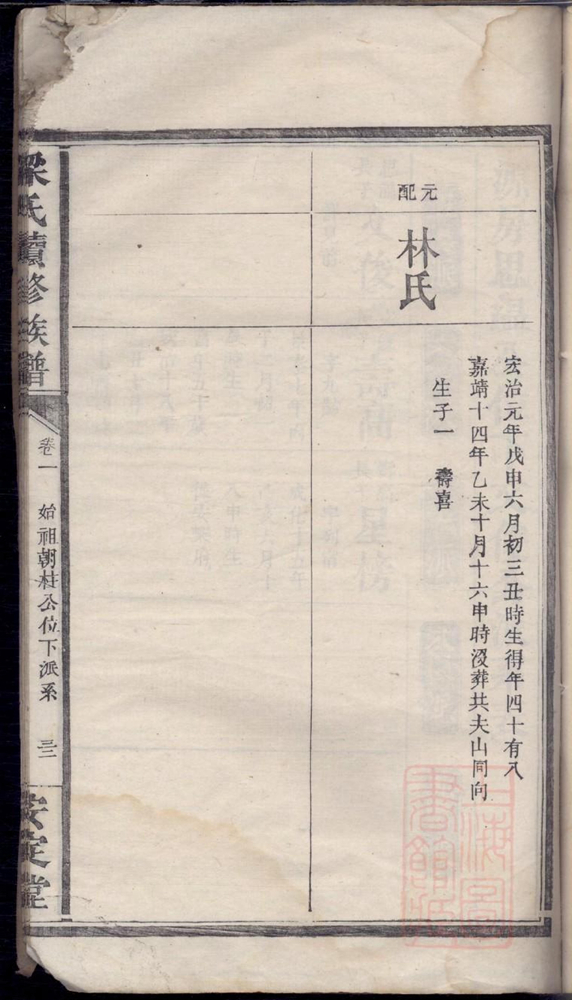 元配
林氏
宏治元年戊申六月初三丑時生得年四十有八
嘉靖十四年乙未十月十六申時沒葬共夫山同向
生子一 壽喜
梁氏續修族譜
卷一 始祖朝柱公位下派系 三二
安定堂
上海圖書館藏